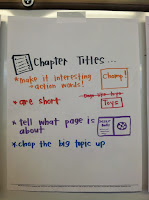 Chapter Titles...
*make it interesting
- action words!
Chomp!
*are short
Toys
*tell what page is
about
*chop the big topic up